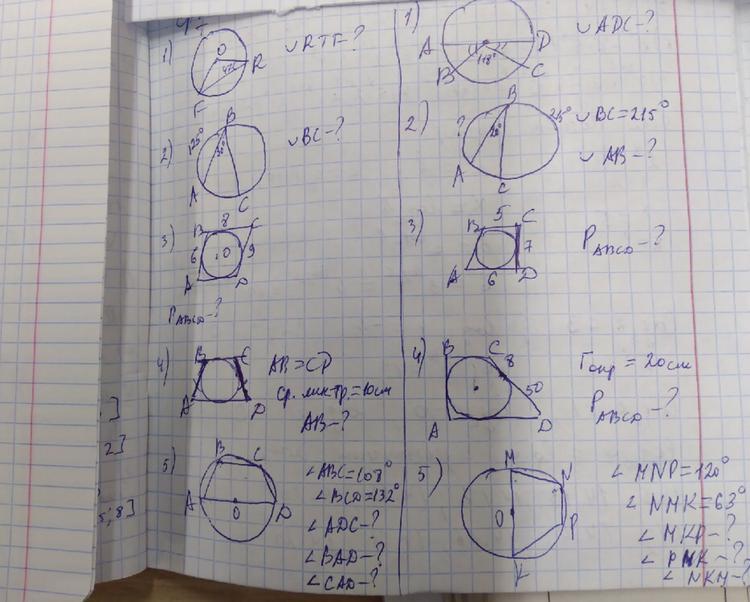 1)
O
R
F
∪RTF-?
2)
125°
B
A
C
∪BC-?
3)
8
B
C
6
O
9
A
D
P_ABCD-?
4)
B
C
A
D
AB=CD
ср. лин.тр.=10см
AB-?
5)
B
C
A
O
D
∠ABC=108°
∠BCD=132°
∠ADC-?
∠BAD-?
∠CAD-?
1)
A
D
118°
B
C
∪ADC-?
2)
B
?
215°
A
C
∪BC=215°
∪AB-?
3)
5
B
C
7
A
6
D
P_ABCD-?
4)
B
C
8
50
A
D
r_окр=20см
P_ABCD-?
5)
M
N
O
P
K
∠MNP=120°
∠NMK=63°
∠MKP-?
∠PMK-?
∠NKM-?
]
2]
5;8]